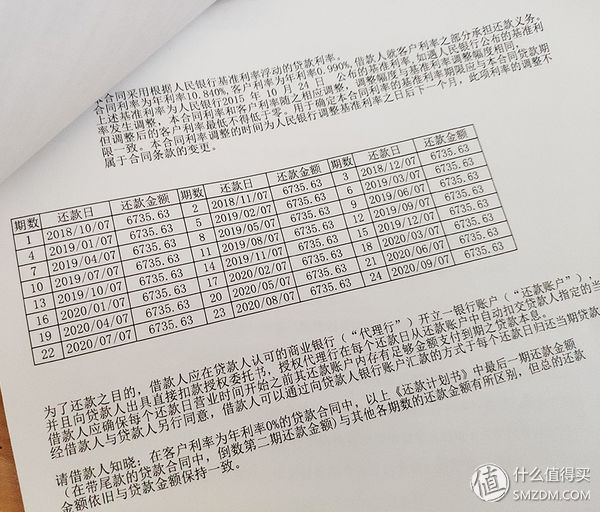 本合同采用根据人民银行基准利率浮动的贷款利率。
合同利率为年利率10.840%，客户利率为年利率0.990%，借款人就客户利率之部分承担还款义务。
上述基准利率为人民银行2015 年 10 月 24 日 公布的基准利率，如遇人民银行公布的基准利
率发生调整，本合同利率和客户利率随之相应调整，调整幅度与基准利率调整幅度相同，
但调整后的客户利率最低不得低于零。用于确定本合同利率的基准利率期限应与本合同贷款期
限一致。本合同利率调整的时间为人民银行调整基准利率之日后下一个月，此项利率的调整不
属于合同条款的变更。
期数 还款日 还款金额 期数 还款日 还款金额 期数 还款日 还款金额
1 2018/10/07 6735.63 2 2018/11/07 6735.63 3 2018/12/07 6735.63
4 2019/01/07 6735.63 5 2019/02/07 6735.63 6 2019/03/07 6735.63
7 2019/04/07 6735.63 8 2019/05/07 6735.63 9 2019/06/07 6735.63
10 2019/07/07 6735.63 11 2019/08/07 6735.63 12 2019/09/07 6735.63
13 2019/10/07 6735.63 14 2019/11/07 6735.63 15 2019/12/07 6735.63
16 2020/01/07 6735.63 17 2020/02/07 6735.63 18 2020/03/07 6735.63
19 2020/04/07 6735.63 20 2020/05/07 6735.63 21 2020/06/07 6735.63
22 2020/07/07 6735.63 23 2020/08/07 6735.63 24 2020/09/07 6735.63
为了还款之目的，借款人应在贷款人认可的商业银行（“代理行”）开立一银行账户（“还款账户”），
并且向贷款人出具直接扣款授权委托书，授权代理行在每个还款日从还款账户中自动扣交贷款人指定的当
借款人应确保每个还款日营业时间开始之前其还款账户内存有足够金额支付到期之贷款本息。
经借款人与贷款人另行同意，借款人可以通过向贷款人银行账户汇款的方式于每个还款日归还当期贷款
请借款人知晓：在客户利率为年利率0%的贷款合同中，以上《还款计划书》中最后一期还款金额
（在带尾款的贷款合同中，倒数第二期还款金额）与其他各期数的还款金额有所区别，但总的还款
金额依旧与贷款金额保持一致。
值 什么值得买
SMZDM.COM